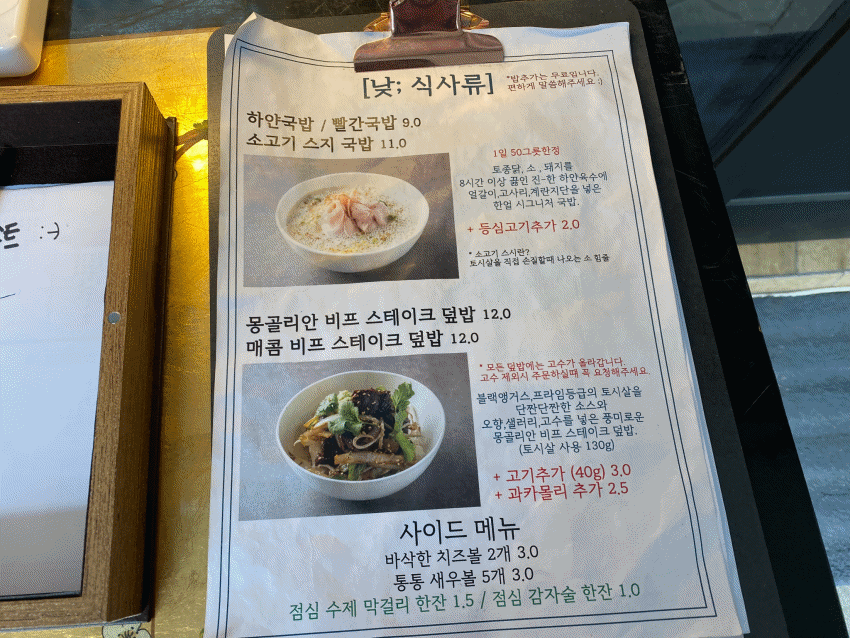 [낮; 식사류]
*밥추가는 무료입니다.
편하게 말씀해주세요 :)
하얀국밥 / 빨간국밥 9.0
소고기 스지 국밥 11.0
1일 50그릇한정
토종닭, 소 , 돼지를
8시간 이상 끓인 진-한 하얀육수에
얼갈이,고사리,계란지단을 넣은
한얼 시그니처 국밥.
+ 등심고기추가 2.0
* 소고기 스시란?
토시살을 직접 손질할때 나오는 소 힘줄
몽골리안 비프 스테이크 덮밥 12.0
매콤 비프 스테이크 덮밥 12.0
* 모든 덮밥에는 고수가 올라갑니다.
고수 제외시 주문하실때 꼭 요청해주세요
블랙앵거스,프라임등급의 토시살을
단짠단짠한 소스와
오향,샐러리,고수를 넣은 풍미로운
몽골리안 비프 스테이크 덮밥.
(토시살 사용 130g)
+ 고기추가 (40g) 3.0
+ 과카몰리 추가 2.5
사이드 메뉴
바삭한 치즈볼 2개 3.0
통통 새우볼 5개 3.0
점심 수제 막걸리 한잔 1.5 / 점심 감자술 한잔 1.0